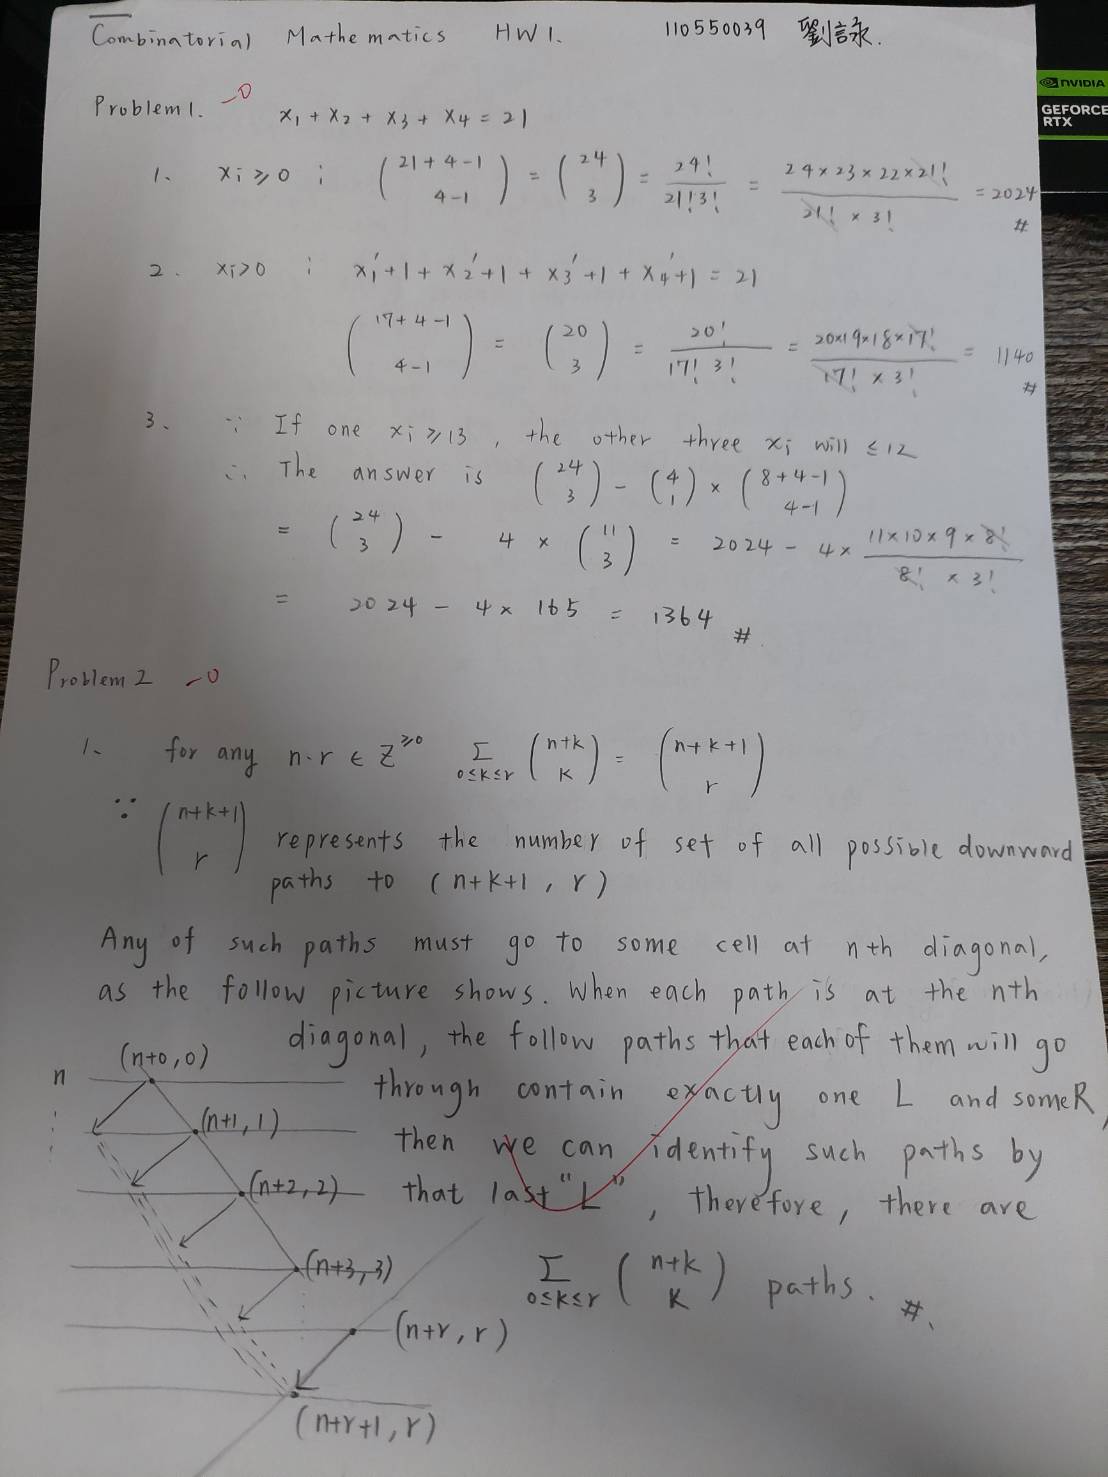 Combinatorial Mathematics HW1. 110550039 劉詠.
NVIDIA
GEFORCE
RTX
Problem1. -0
x₁ + x₂ + x₃ + x₄ = 21
1. xᵢ ≥ 0 : (21+4-1 / 4-1) = (24 / 3) = 24! / 21!3! = 24×23×22×21! / 21! × 3! = 2024 #
2. xᵢ>0 : x₁'+1 + x₂'+1 + x₃'+1 + x₄'+1 = 21
(17+4-1 / 4-1) = (20 / 3) = 20! / 17! 3! = 20×19×18×17! / 17! × 3! = 1140 #
3. ∵ If one xᵢ ≥ 13, the other three xⱼ will ≤ 12
∴ The answer is (24 / 3) - (4 / 1) × (8+4-1 / 4-1)
= (24 / 3) - 4 × (11 / 3) = 2024 - 4× 11×10×9×8! / 8! × 3!
= 2024 - 4× 165 = 1364 #.
Problem2 -0
1. for any n.r ∈ Z^≥0 Σ 0≤k≤r (n+k / k) = (n+k+1 / r)
∵ (n+k+1 / r) represents the number of set of all possible downward
paths to (n+k+1, r)
Any of such paths must go to some cell at nth diagonal,
as the follow picture shows. When each path is at the nth
diagonal, the follow paths that each of them will go
through contain exactly one L and some R,
then we can identify such paths by
that last "L", therefore, there are
Σ 0≤k≤r (n+k / k) paths. #.
n
(n+0, 0)
(n+1, 1)
(n+2, 2)
(n+3, 3)
(n+r, r)
(n+r+1, r)